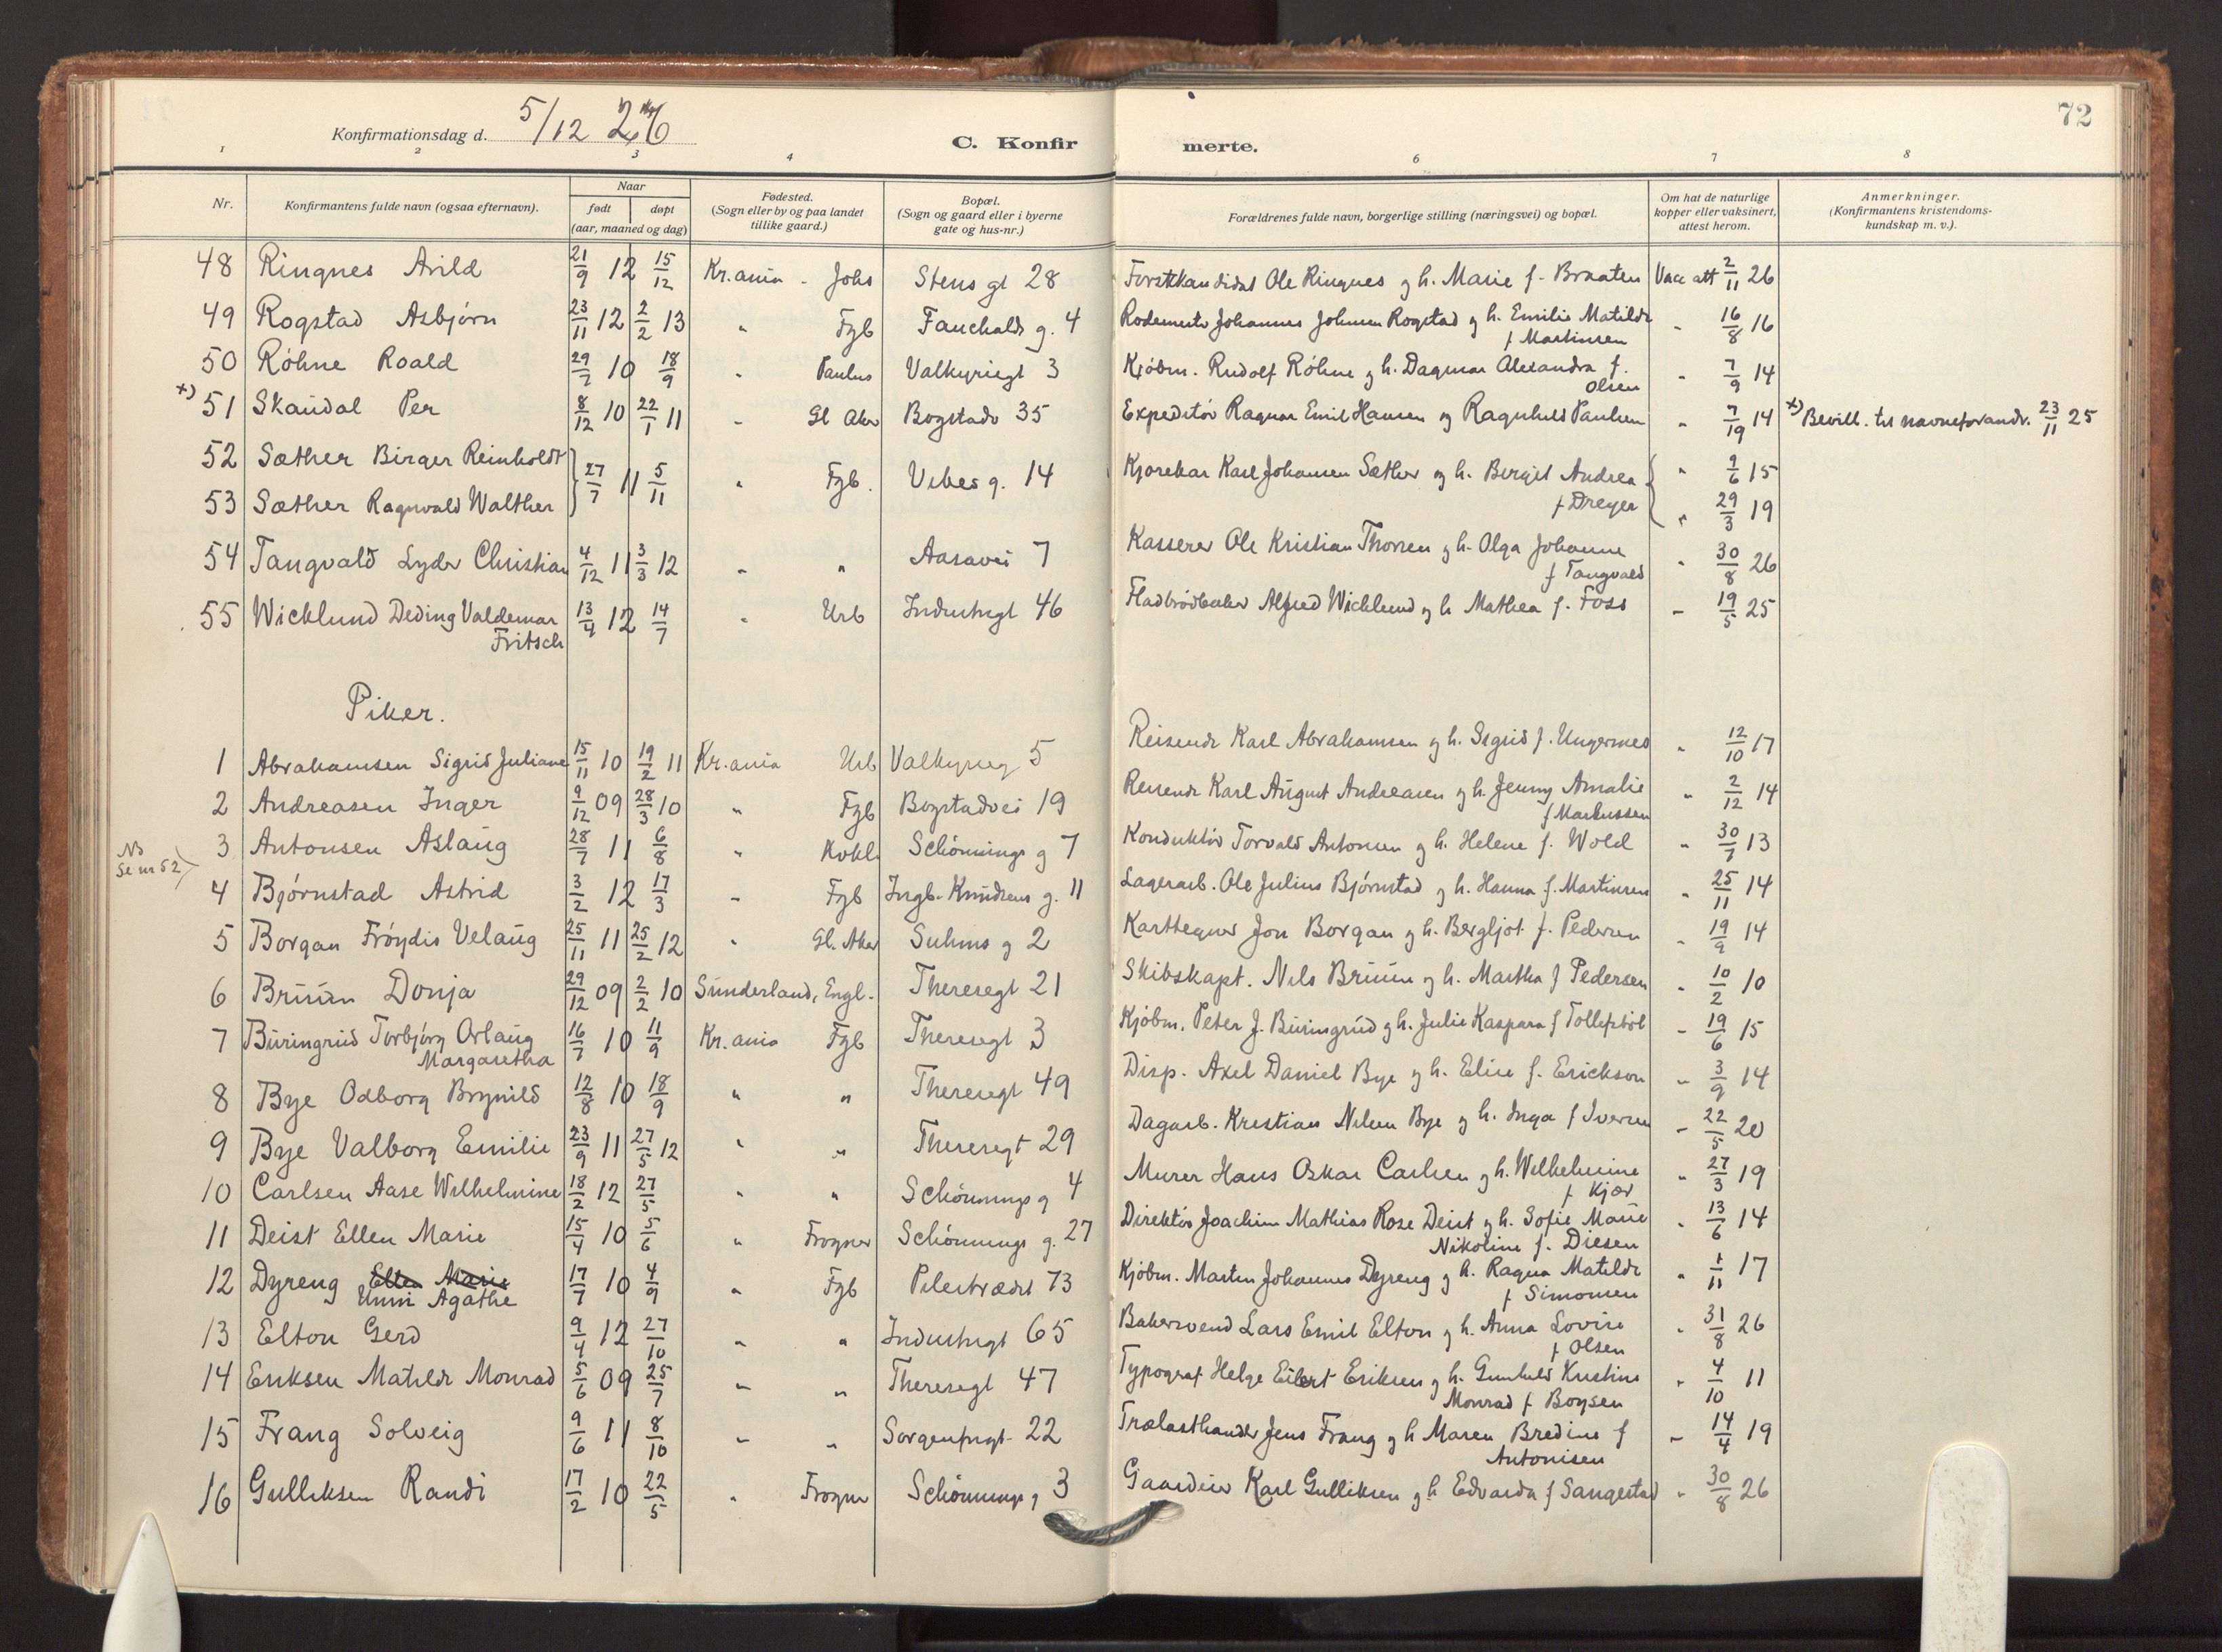 72
Konfirmationsdag d. 5/12 26
C. Konfirmerte.
1 2 3 4 6 7 8
Nr. Konfirmantens fulde navn (ogsaa efternavn). Naar født døpt (aar, maaned og dag) Fødested. (Sogn eller by og paa landet tillike gaard.) Bopæl. (Sogn og gaard eller i byerne gate og hus-nr.) Forældrenes fulde navn, borgerlige stilling (næringsvei) og bopæl. Om hat de naturlige kopper eller vaksinert, attest herom. Anmerkninger. (Konfirmantens kristendomskundskap m. v.).
48 Ringnes Arild 21/9 12 15/12 Kr.ania - Johs Stens gt 28 Forstkandidat Ole Ringnes g h. Marie f. Braaten Vacc att 2/11 26
49 Rogstad Asbjørn 23/11 12 2/2 13 " Fgb Fauchalds g. 4 Rodemester Johannes Johnsen Rogstad g h. Emilie Matilde " 16/8 16
f Martinsen
50 Røhne Roald 29/7 10 18/9 " Paulus Valkyriegt 3 Kjøbm. Rudolf Røhne g h. Dagmar Alexandra f. " 7/9 14
Olsen
+) 51 Skaudal Per 8/12 10 22/1 11 " Gl Aker Bogstadv 35 Expeditør Ragnar Emil Hansen og Ragnhild Paulsen " 7/19 14 +) Bevill. til navneforandr. 23/11 25
52 Sæther Birger Reinholdt 27/7 11 5/11 " Fgb. Vibes g. 14 Kjørekar Karl Johansen Sæther og h. Birgit Andrea " 9/6 15
53 Sæther Ragnvald Walther f Dreyer " 29/3 19
54 Tangvald Lyder Christian 4/12 11 3/3 12 " " Aasavei 7 Kasserer Ole Kristian Thorsen g h. Olga Johanne " 30/8 26
f Tangvald
55 Wicklund Deding Valdemar 13/4 12 14/7 " Urb Industrigt 46 Fladbrødbaker Alfred Wicklund g h Mathea f. Foss " 19/5 25
Fritsch
Piker.
1 Abrahamsen Sigrid Juliane 15/11 10 19/2 11 Kr.ania Urb Valkyrieg 5 Reisende Karl Abrahamsen g h. Sigrid f. Ungernes " 12/10 17
2 Andreasen Inger 9/12 09 28/3 10 " Fgb Bogstadvei 19 Reisende Karl August Andreasen g h. Jenny Amalie " 2/12 14
f Markussen
3 Antonsen Aslaug 28/7 11 6/8 " Schønnings g 7 Konduktør Torvald Antonsen g h. Helene f. Wold " 30/7 13
Se nr 52)
4 Bjørnstad Astrid 3/2 12 17/3 " Fgb Ingb. Knudsens g. 11 Lagerarb. Ole Julius Bjørnstad g h. Hanna f. Martinsen " 25/11 14
5 Borgan Frøydis Velaug 25/11 11 25/2 12 " Gl. Aker Suhms g 2 Karttegner Jon Borgan g h. Bergljot f. Pedersen " 19/9 14
6 Brüün Donja 29/12 09 2/2 10 Sunderland, Engl. Theresegt 21 Skibskapt. Nils Brüün g h. Martha f Pedersen " 10/2 10
7 Büringrud Torbjørg Orlaug 16/7 10 11/9 Kr.ania Fgb Theresegt 3 Kjøbm. Peter J. Büringrud g h. Julie Kaspara f Tollefsbøl " 19/6 15
Margaretha
8 Bye Odborg Brynild 12/8 10 18/9 " " Theresegt 49 Disp. Axel Daniel Bye g h. Elise f. Erickson " 3/9 14
9 Bye Valborg Emilie 23/9 11 27/5 12 " " Theresegt 29 Dagarb. Kristian Nilsen Bye g h. Inga f Iversen " 22/5 20
10 Carlsen Aase Wilhelmine 18/2 12 27/5 " " Schønnings g 4 Murer Hans Oskar Carlsen g h. Wilhelmine " 27/3 19
f Kjær
11 Deist Ellen Marie 15/4 10 5/6 " Frogner Schønnings g. 27 Direktør Joachim Mathias Rose Deist g h. Sofie Marie " 13/6 14
Nikoline f. Diesen
12 Dyreng Ellen Marie 17/7 10 4/9 " Fgb Pilestrædet 73 Kjøbm. Martin Johannes Dyreng g h. Ragna Matilde " 1/11 17
Unni Agathe f Simonsen
13 Elton Gerd 9/4 12 27/10 " " Industrigt 65 Bakersvend Lars Emil Elton g h. Anna Lovise " 31/8 26
f Olsen
14 Eriksen Matilde Monrad 5/6 09 25/7 " " Theresegt 47 Typograf Helge Eilert Eriksen g h. Gunhild Kristine " 4/10 11
Monrad f Boysen
15 Frang Solveig 9/6 11 8/10 " " Sorgenfrigt 22 Trælasthandler Jens Frang g h Maren Bredine f " 14/4 19
Antonisen
16 Gulliksen Randi 17/2 10 22/5 " Frogner Schønnings g 3 Gaardeier Karl Gulliksen g h Edvarda f Sangestad " 30/8 26